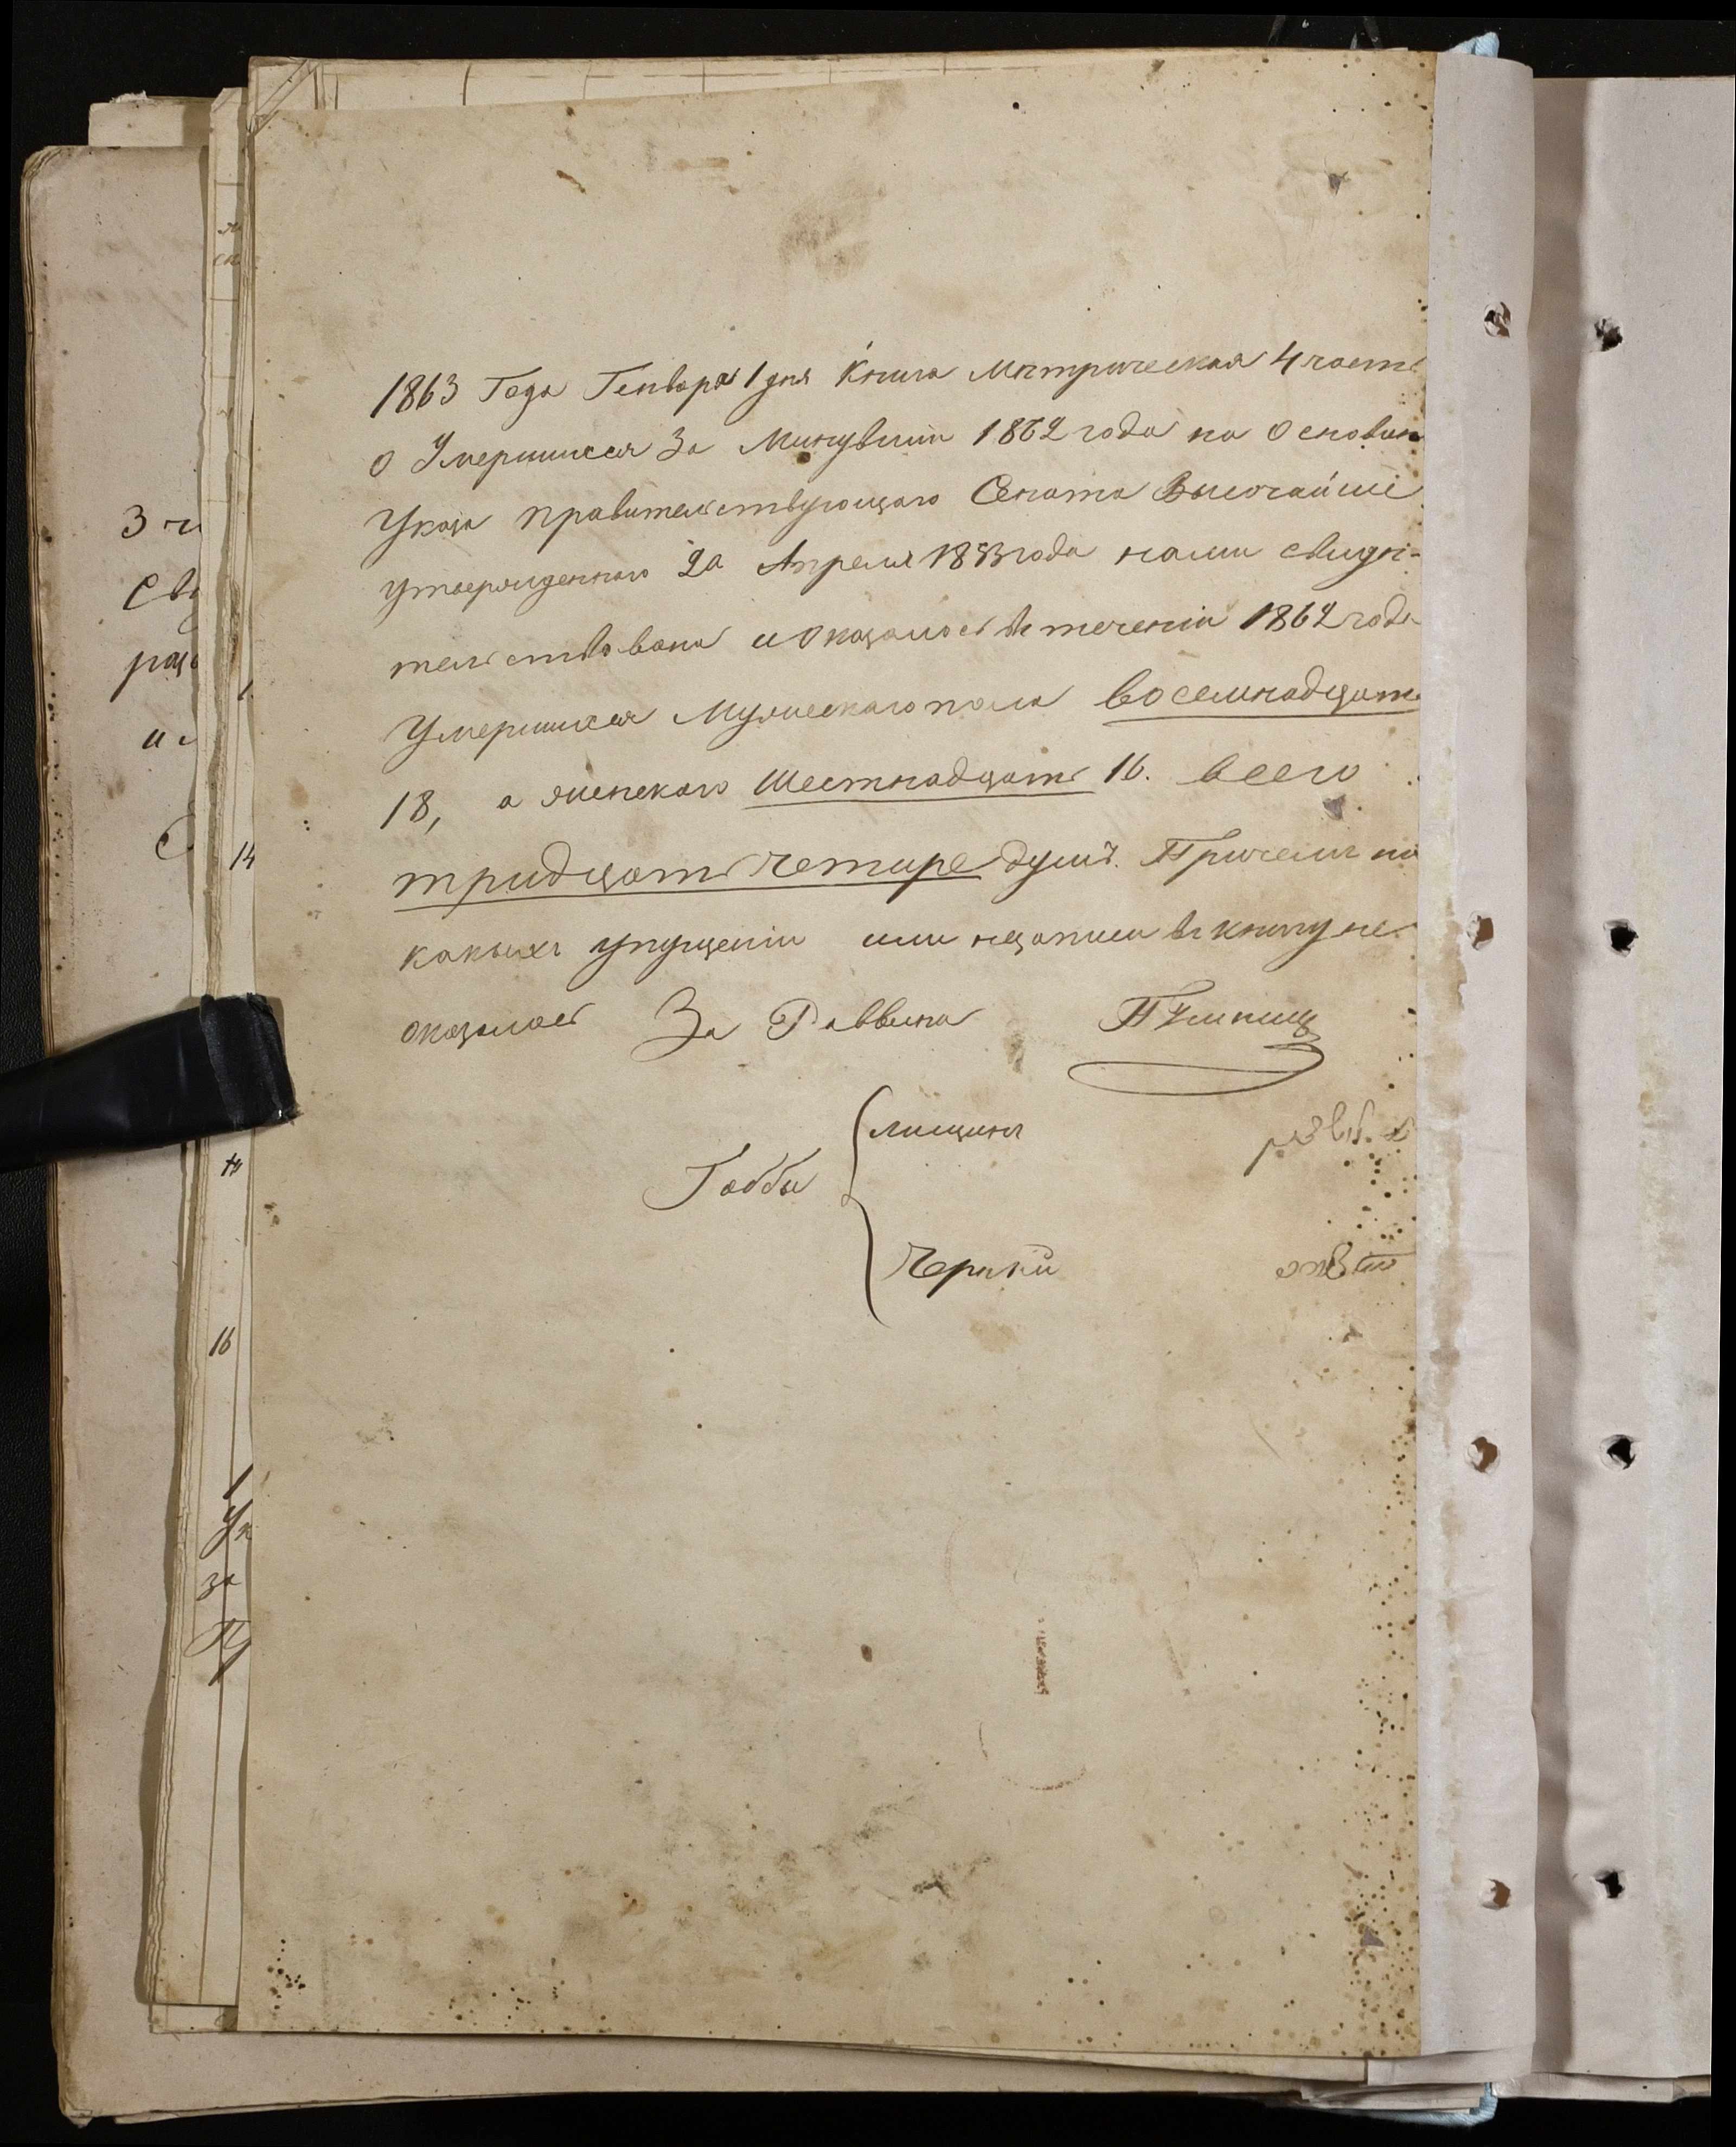 1863 Года Генвара 1 дня Книга Метрическая 4 часть
О Умершихся За Минувшии 1862 года на Основан
Указа правительствующаго Сената Высочайше
утвержденнаго 20 Апреля 1853 года нами свиде-
тельствована и Оказалось въ теченіи 1862 года
Умершихся Мужескаго пола восемнадцать
18, а женскаго Шестнадцать 16. всего
тридцать четире душъ. Причемъ ни
какихъ упущеніи или в книгу не
оказалось За Раввина
Габбы
лищинъ
Черний
3 ч
Св
раз
и с
14
16
Ук
за